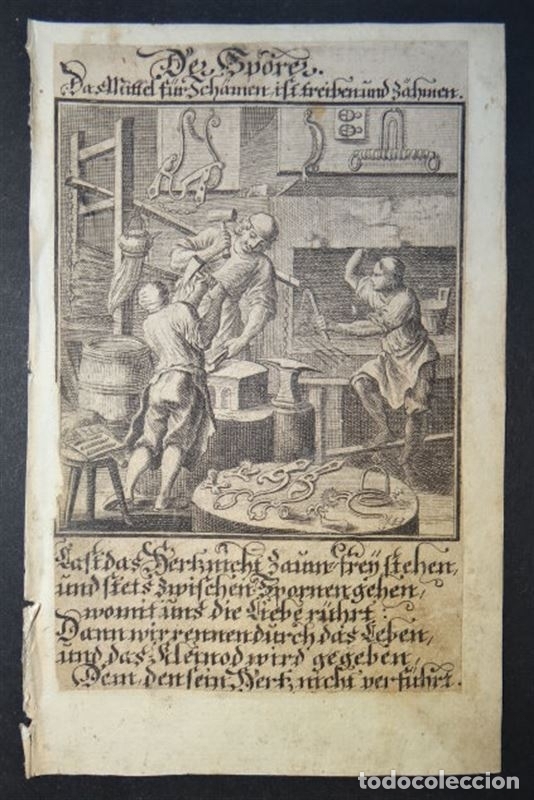 Der Sporer.
Das Mittel für Schämen, ist treiben und Zähmen.
Last das Hertz nicht Zaum-frey stehen,
und stets zwischen Spornen gehen,
womit uns die Liebe rührt.
Dann wir rennen durch das Leben,
und das Kleinod wird gegeben,
Dem, den sein Hertz nicht verführt.
todocoleccion